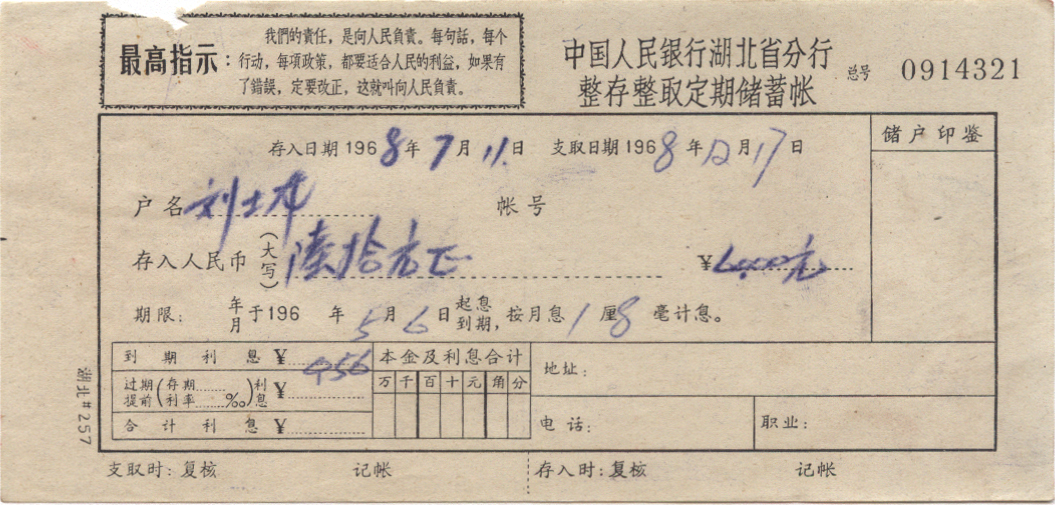 最高指示:
我們的責任，是向人民負責。每句話，每个
行动，每項政策，都要适合人民的利益，如果有
了錯誤，定要改正，这就叫向人民負責。
中国人民银行湖北省分行
整存整取定期储蓄帐
总号 0914321
存入日期 1968年7月11日 支取日期 1968年12月17日
储户印鉴
户名 刘士 帐号
存入人民币(大写)陆拾元正 ¥60.00元
期限: 年/月 于196 年5月6日 起息/到期, 按月息1厘8毫计息。
到期利息 ¥ 956
过期/提前(存期/利率 ‰)利息 ¥
合计利息 ¥
本金及利息合计
万 千 百 十 元 角 分
地址:
电话: 职业:
湖北#257
支取时: 复核 记帐 存入时: 复核 记帐